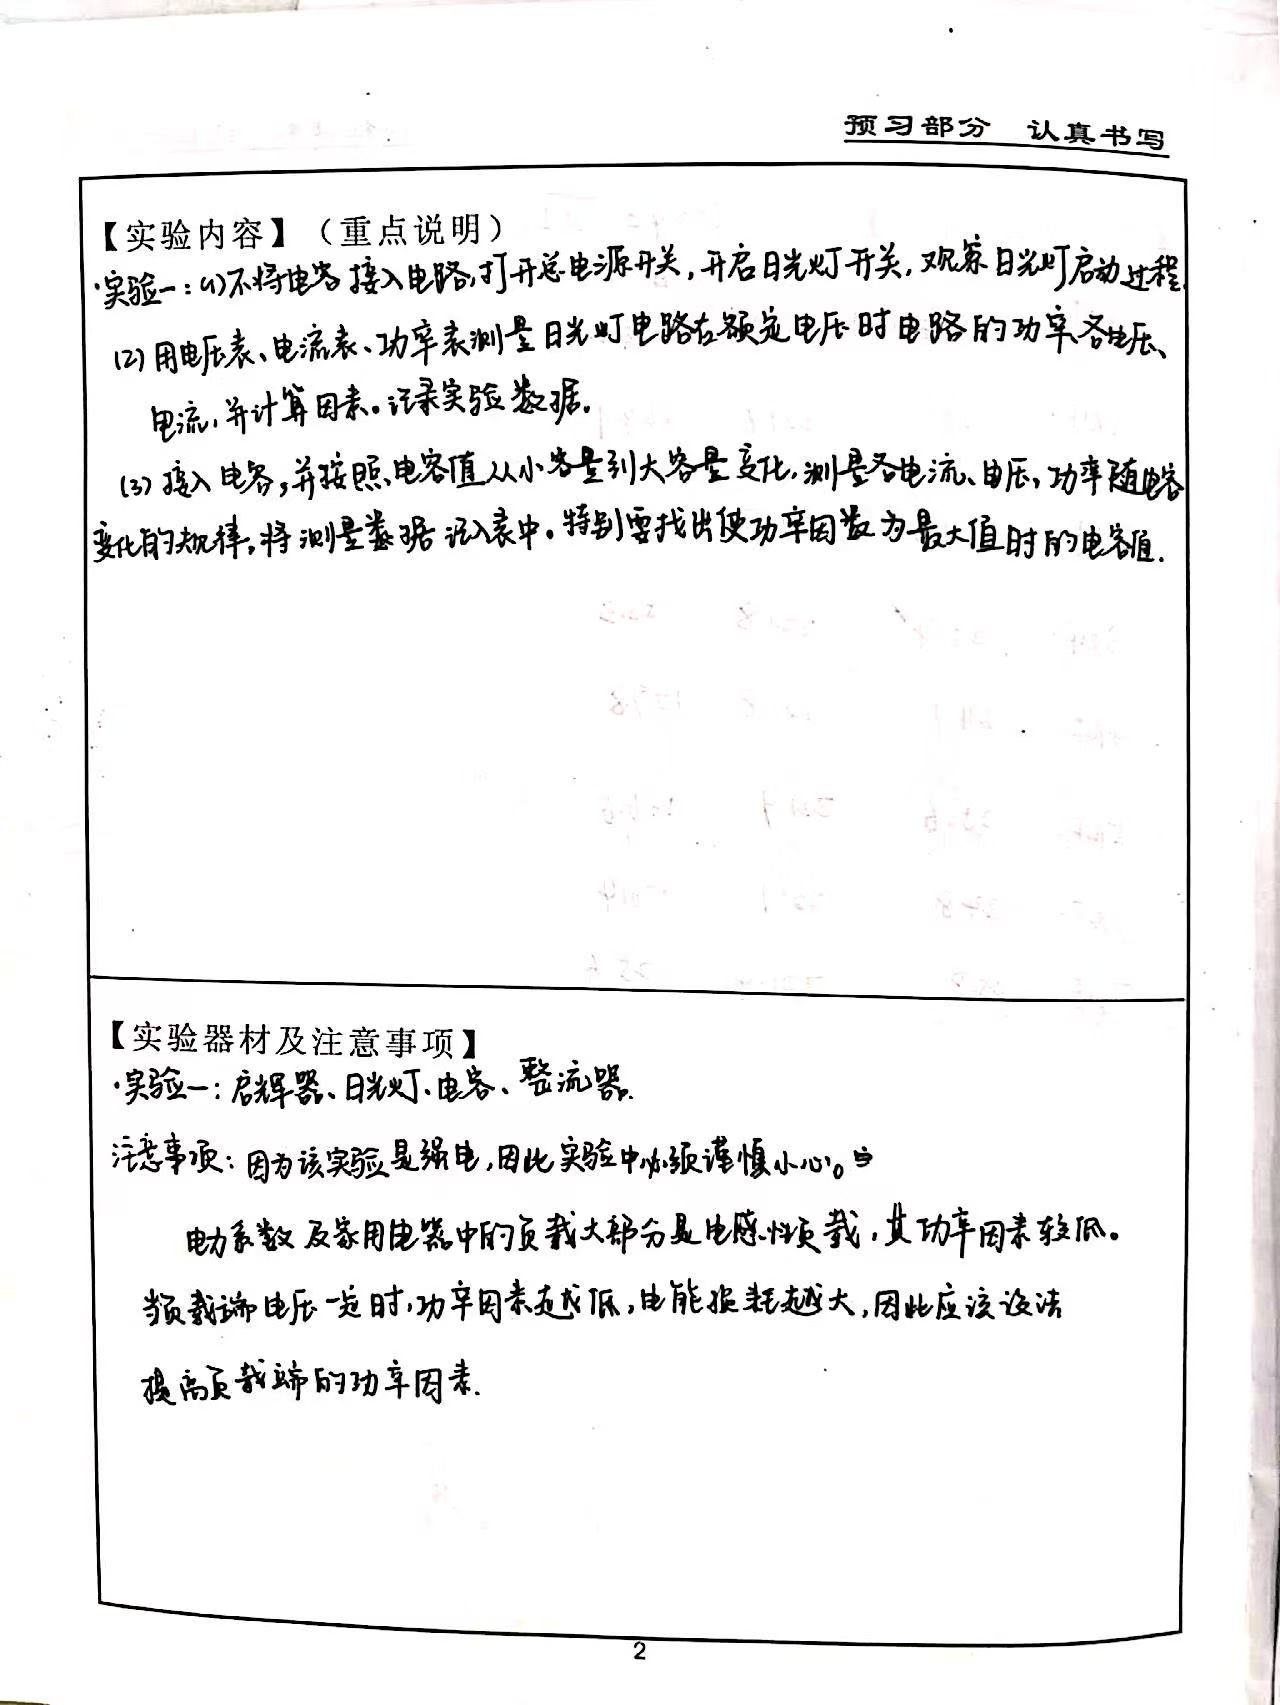 预习部分 认真书写
【实验内容】（重点说明）
·实验一：(1)不将电容接入电路,打开总电源开关,开启日光灯开关,观察日光灯启动过程.
(2)用电压表、电流表、功率表测量日光灯电路在额定电压时电路的功率、各电压、
电流,并计算因素。记录实验数据。
(3)接入电容,并按照电容值从小容量到大容量变化,测量各电流、电压,功率随电容
变化的规律,将测量数据记入表中。特别要找出使功率因数为最大值时的电容值.
【实验器材及注意事项】
·实验一：启辉器、日光灯、电容、整流器.
注意事项：因为该实验是强电,因此实验中必须谨慎小心。
电力系数及家用电器中的负载大部分是电感性负载,其功率因素较低。
当负载端电压一定时,功率因素越低,电能损耗越大,因此应该设法
提高负载端的功率因素.
2